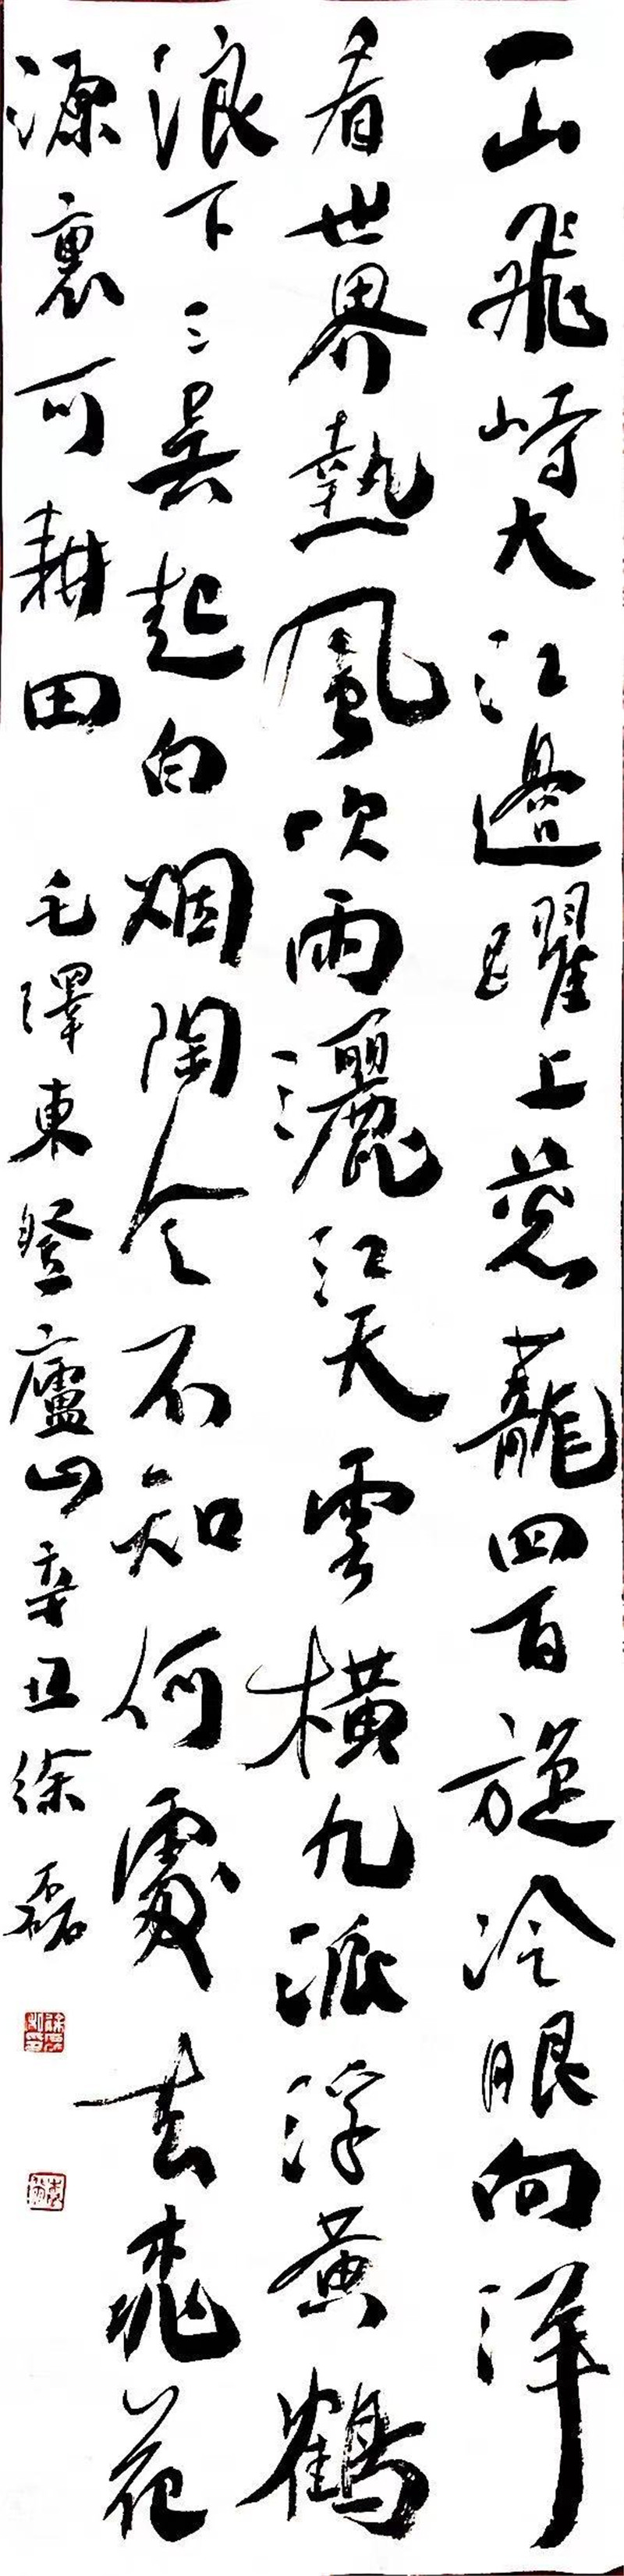 一山飛峙大江邊躍上葱蘢四百旋冷眼向洋
看世界熱風吹雨灑江天雲橫九派浮黄鶴
浪下三吴起白烟陶令不知何處去桃花
源裏可耕田
毛澤東登廬山辛丑徐磊